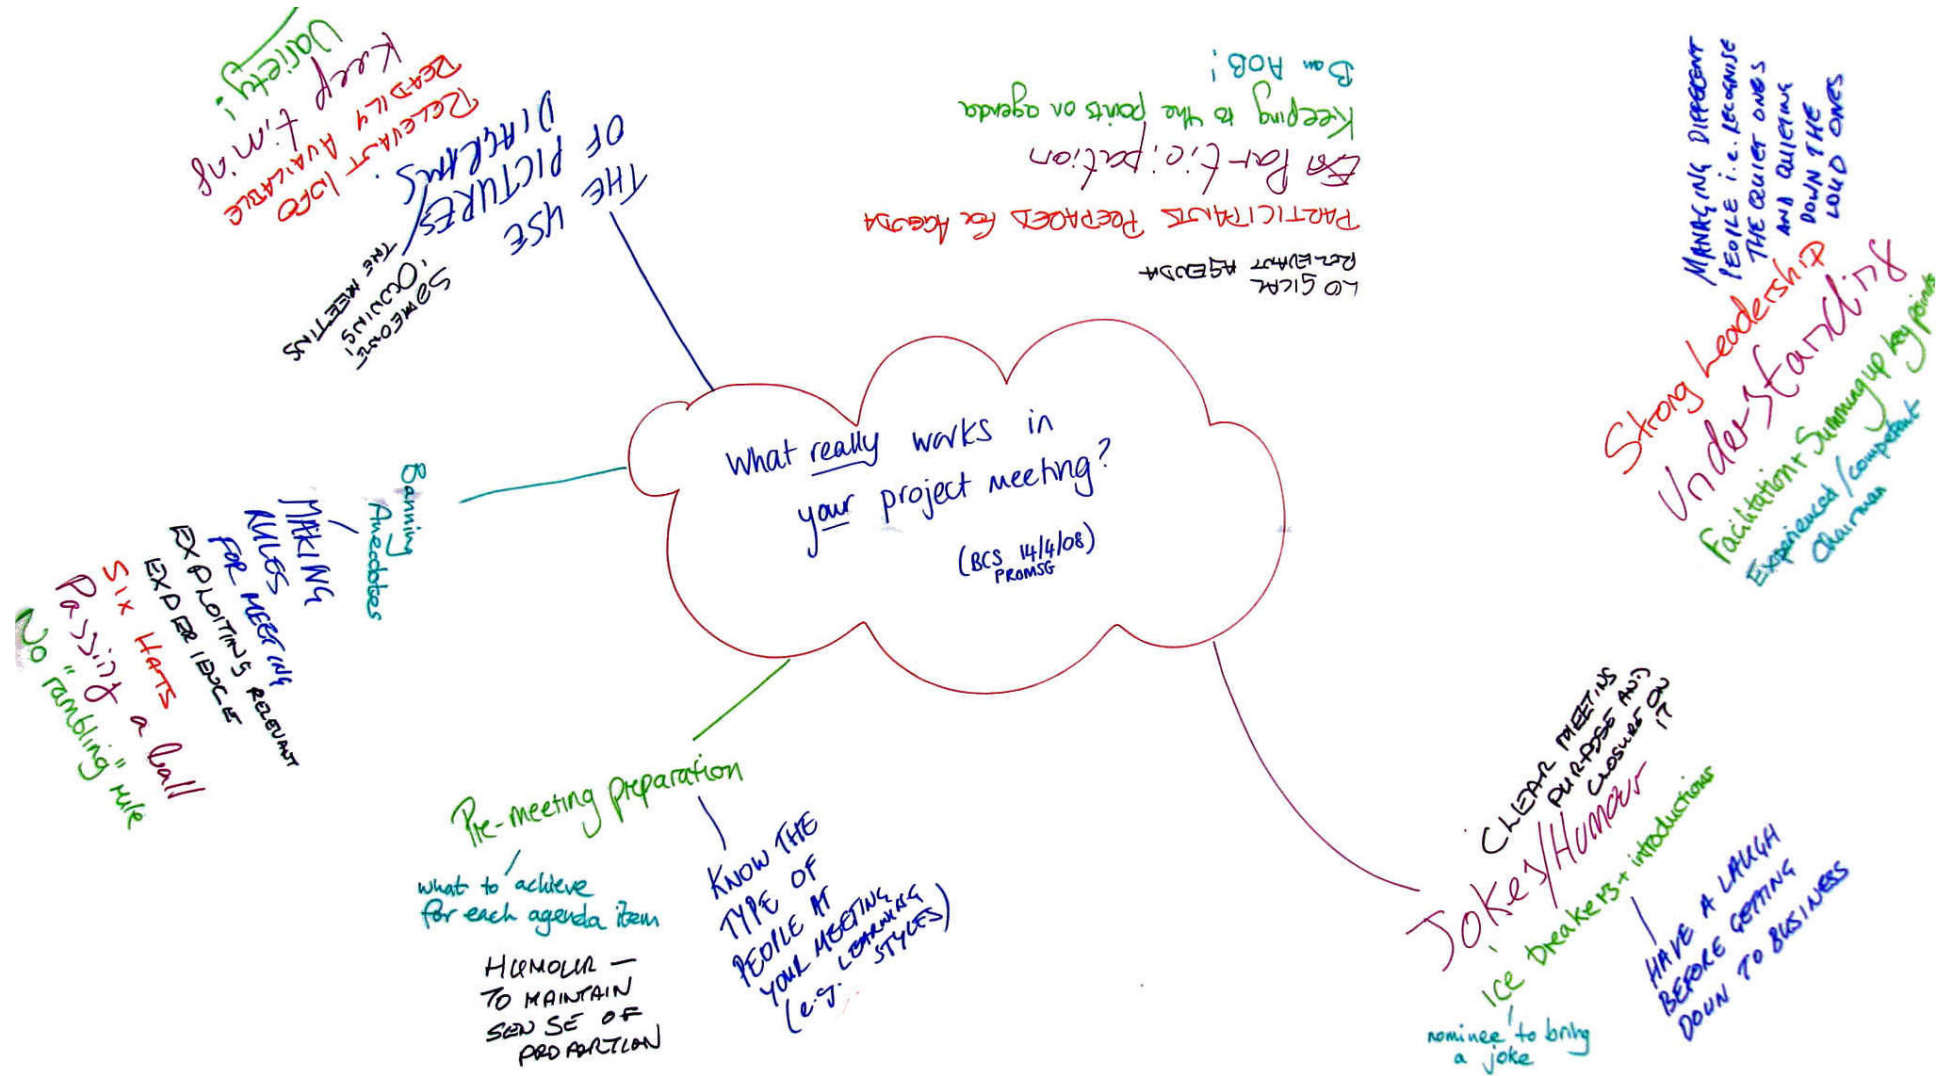 What really works in
your project meeting?
(BCS 14/4/08)
PROMSG
THE USE
OF PICTURES/
DIAGRAMS.
RELEVANT INFO
READILY AVAILABLE
Keep timing
Variety!
SOMEONE
'OWNING'
THE MEETING
LOGICAL
RELEVANT AGENDA
PARTICIPANTS PREPARED for AGENDA
Participation
Keeping to the points on agenda
Ban AOB!
MANAGING DIFFERENT
PEOPLE i.e. RECOGNISE
THE QUIET ONES
AND QUIETING
DOWN THE
LOUD ONES
Strong Leadership
Understanding
Facilitation + Summing up key points
Experienced/competent
Chairman
Banning
Anecdotes
MAKING
RULES
FOR MEETING
EXPLOITING RELEVANT
EXPERIENCE
SIX HATS
Passing a ball
No "rambling" rule
Pre-meeting preparation
what to achieve
for each agenda item
HUMOUR —
TO MAINTAIN
SENSE OF
PROPORTION
KNOW THE
TYPE OF
PEOPLE AT
YOUR MEETING
(e.g. LEARNING
STYLES)
CLEAR MEETING
PURPOSE AND
CLOSURE ON
IT
Jokes/Humour
ice breakers + introductions
nominee to bring
a joke
HAVE A LAUGH
BEFORE GETTING
DOWN TO BUSINESS